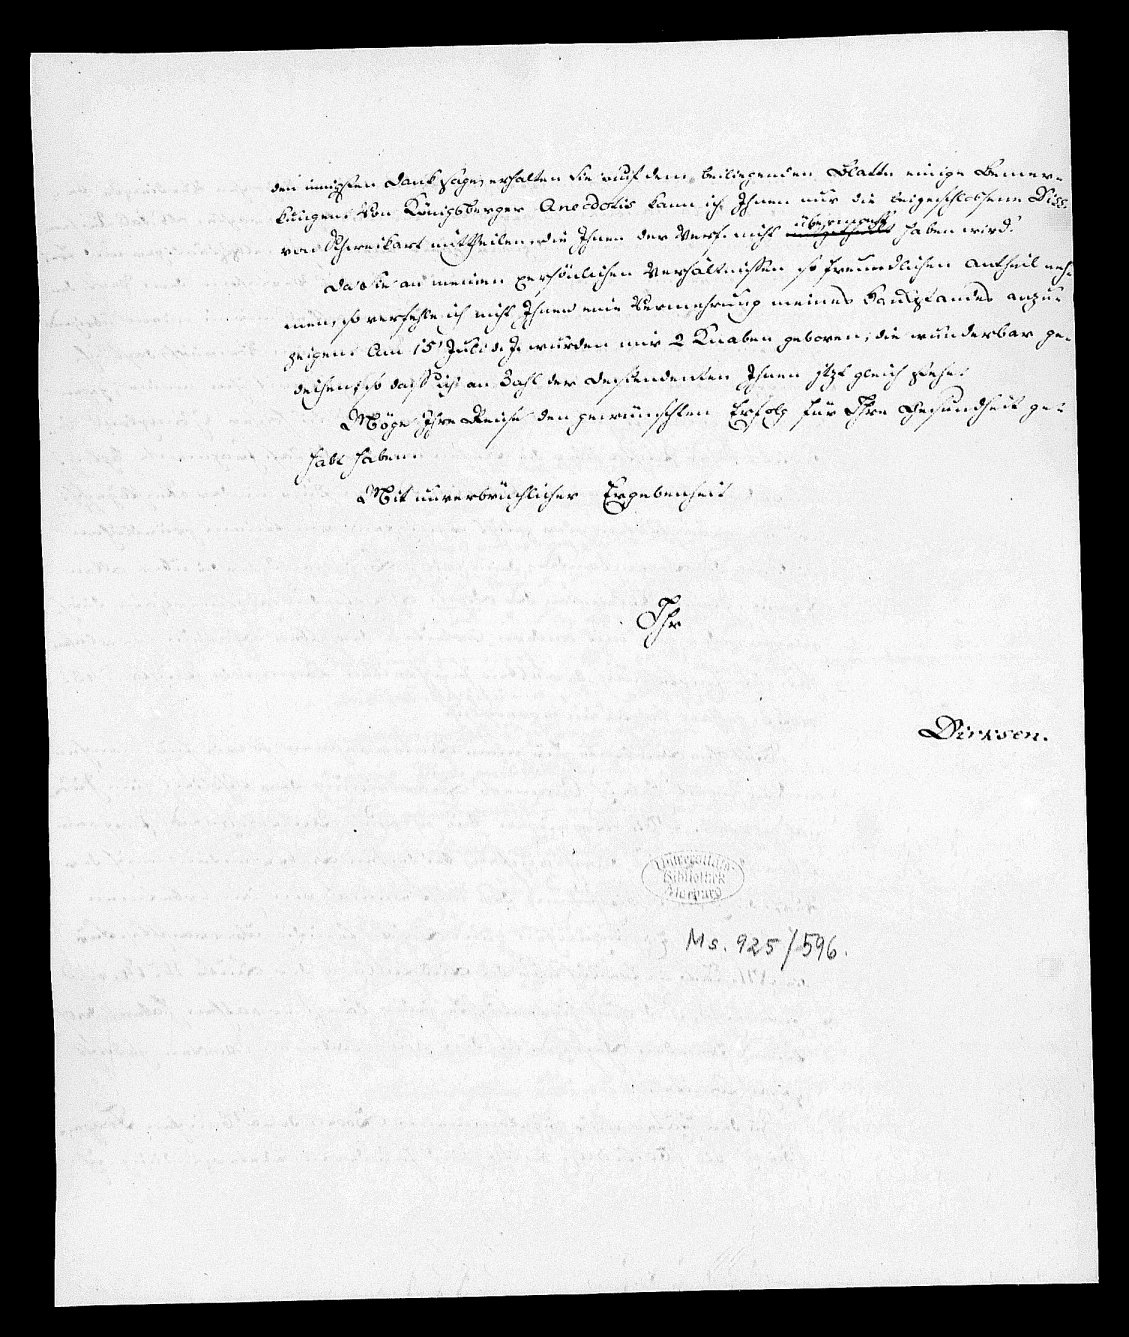 den innigsten Dank sage, erhalten Sie auf dem beiliegenden Blatte einige Bemer-
kungen. Von Königsberger Anecdotis kann ich Ihnen nur die beigeschlossene Diss.
von Schweikart mittheilen, die Ihnen der Verf. nicht übermacht haben wird.
Da Sie an meinen persönlichen Verhältnissen so freundlichen Antheil neh-
men, so verfehle ich nicht Ihnen eine Vermehrung meines Hausstandes anzu-
zeigen. Am 15 Juli d. J. wurden mir 2 Knaben geboren, die wunderbar ge-
deihen, so daß ich an Zahl der Descendenten Ihnen jetzt gleich stehe.
Möge Ihre Reise den gewünschten Erfolg für Ihre Gesundheit ge-
habt haben.
Mit unverbrüchlicher Ergebenheit
Ihr
Dirksen.
Universitäts-
Bibliothek
Marburg
Ms. 925/596.